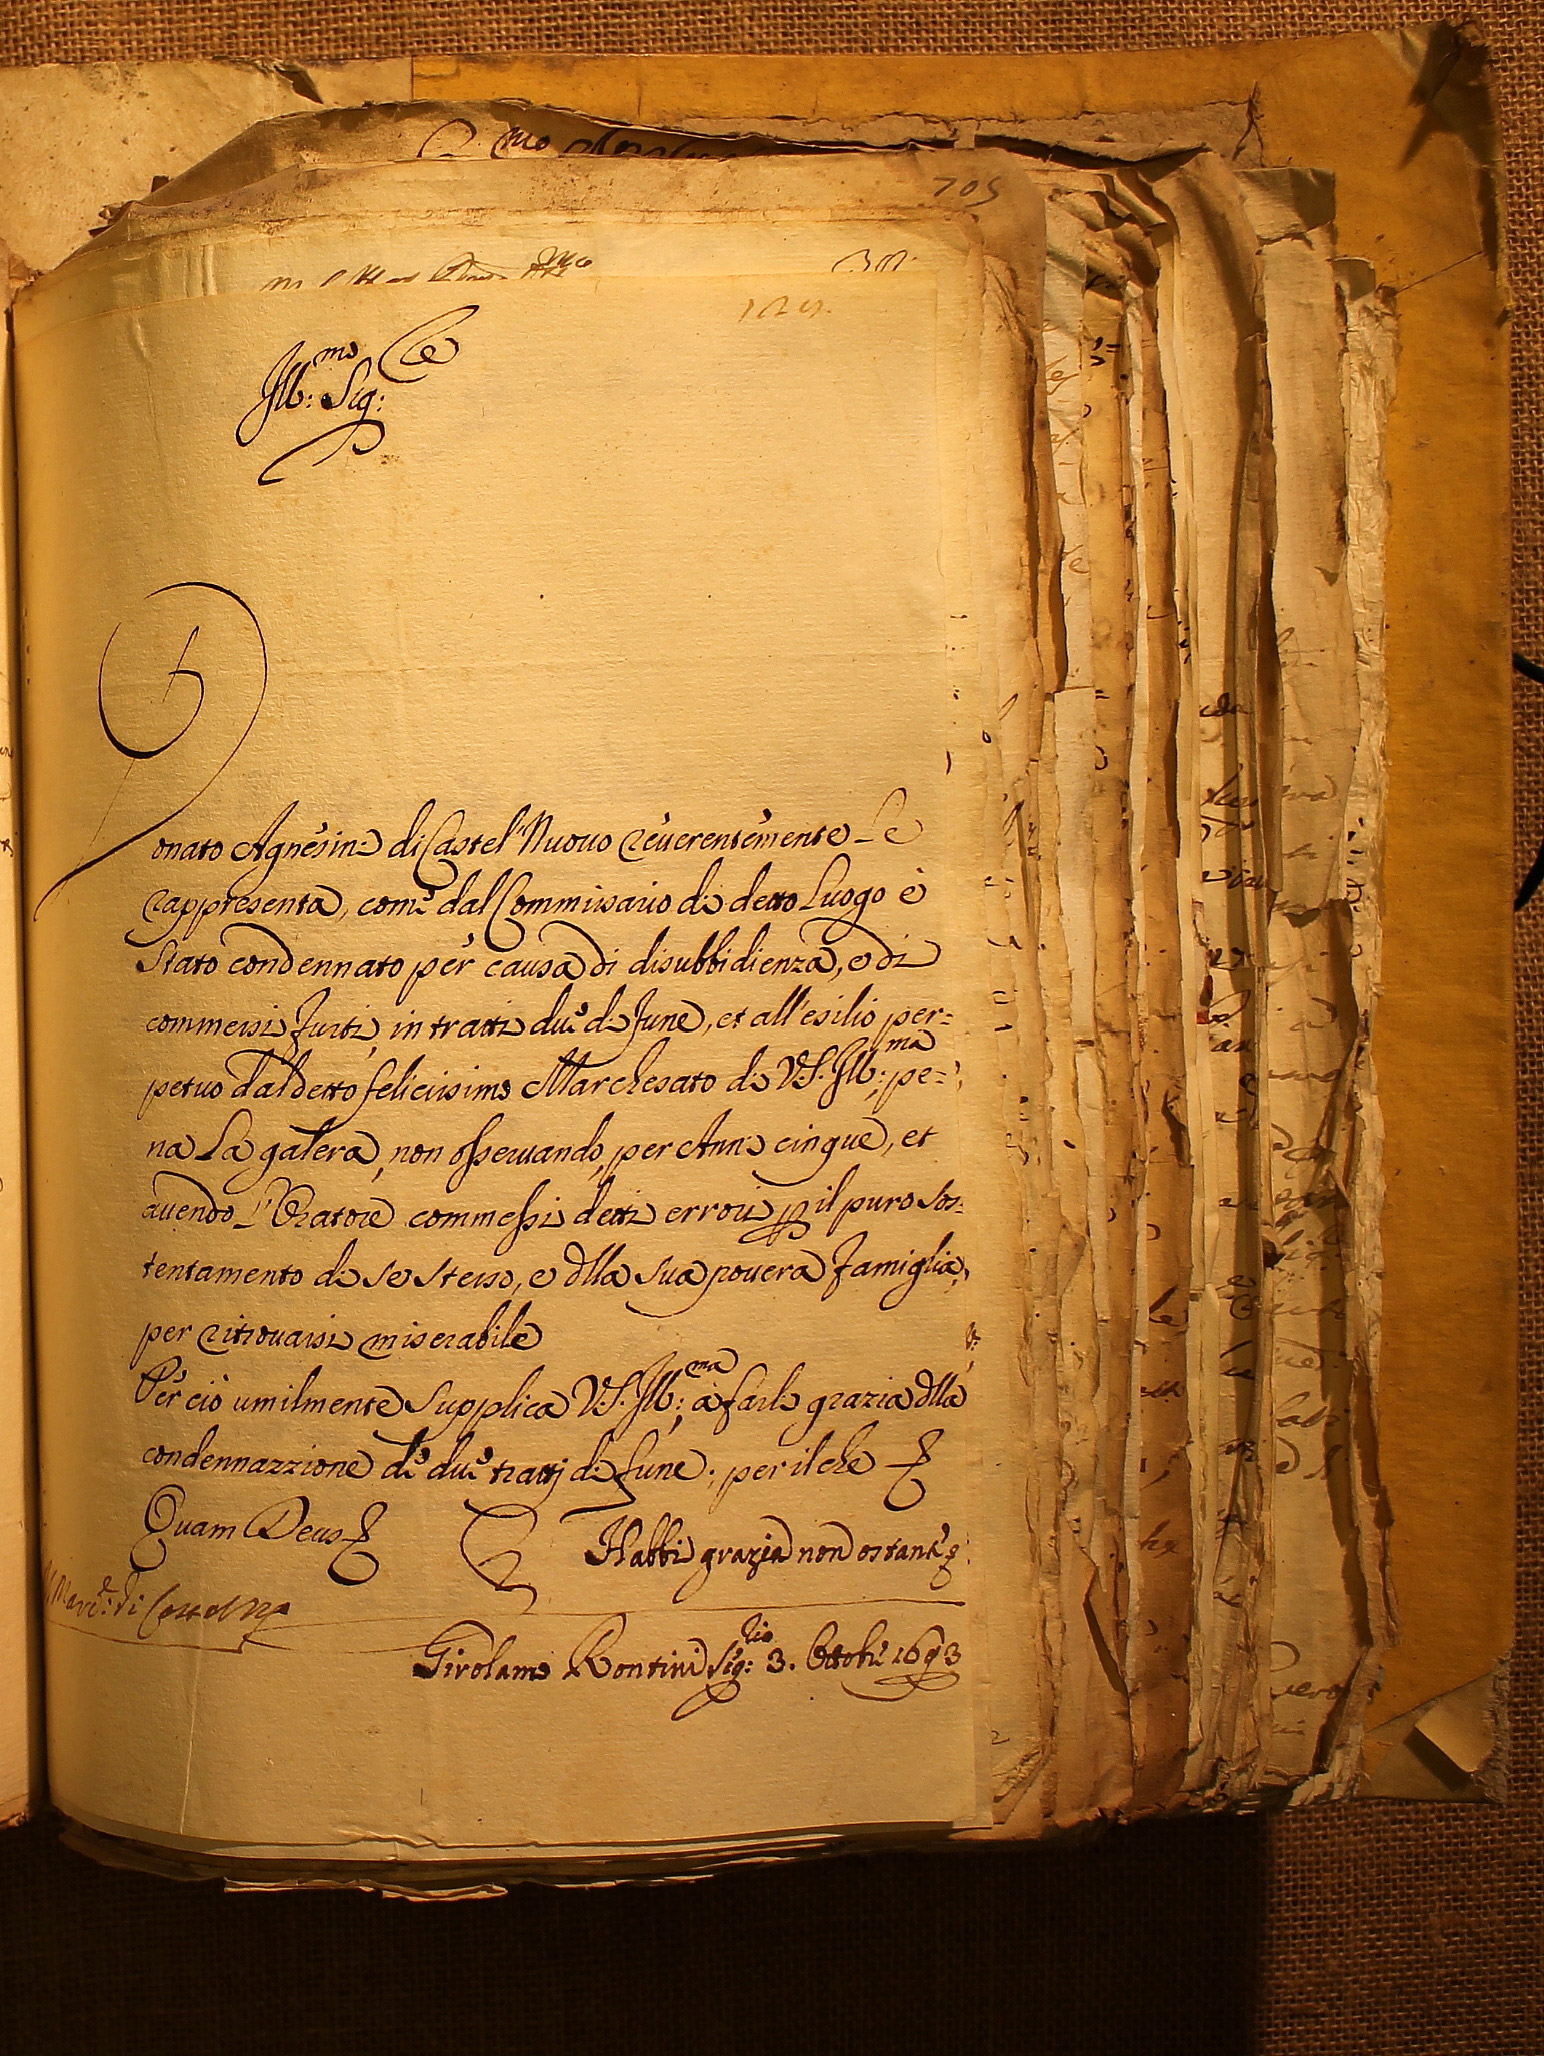 705
Ill:mo Sig:re
Donato Agnesini di Castel Nuouo reuerentemente Le
rappresenta, come dal Commissario di detto Luogo è
stato condennato per causa di disubbidienza, e di
commessi furti, in tratti due di fune, et all'esilio per=
petuo dal detto felicissimo Marchesato di V.S. Ill:ma; pe=
na La galera, non osseruando, per Anni cinque, et
auendo L'Oratore commessi detti errori p il puro sos:
tentamento di se stesso, e dlla sua pouera famiglia,
per ritrouarsi miserabile
Per ciò umilmente supplica V.S. Ill:ma; à farli grazia dlla
condennazzione de due tratti di fune; per il che
Quam Deus
Habbi grazia non ostante
Il Marc:e di
Girolamo Rontini Sig:rio 3. Ottobr 1693